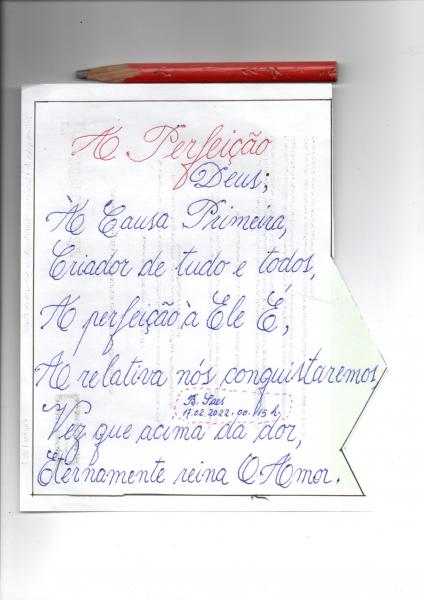 A Perfeição
Deus;
À Causa Primeira,
Criador de tudo e todos,
A perfeição à Ele É,
A relativa nós conquistaremos,
B. Saes
17.02.2022.00:15 h.
Vez que acima da dor,
Eternamente reina O Amor.